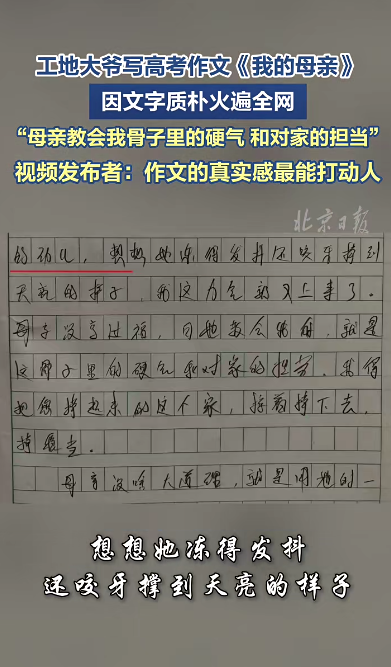 工地大爷写高考作文《我的母亲》
因文字质朴火遍全网
“母亲教会我骨子里的硬气 和对家的担当”
视频发布者：作文的真实感最能打动人
北京日报
的 儿，想想她冻得发抖还咬牙撑到
天亮的样子，我这力气就又上来了。
母亲没享过福，可她教会我的，就是
这骨子里的硬气和对家的担当。我得
把她撑起来的这个家，接着撑下去，
撑稳当。
母亲没啥大道理，就是用她的一
想想她冻得发抖
还咬牙撑到天亮的样子